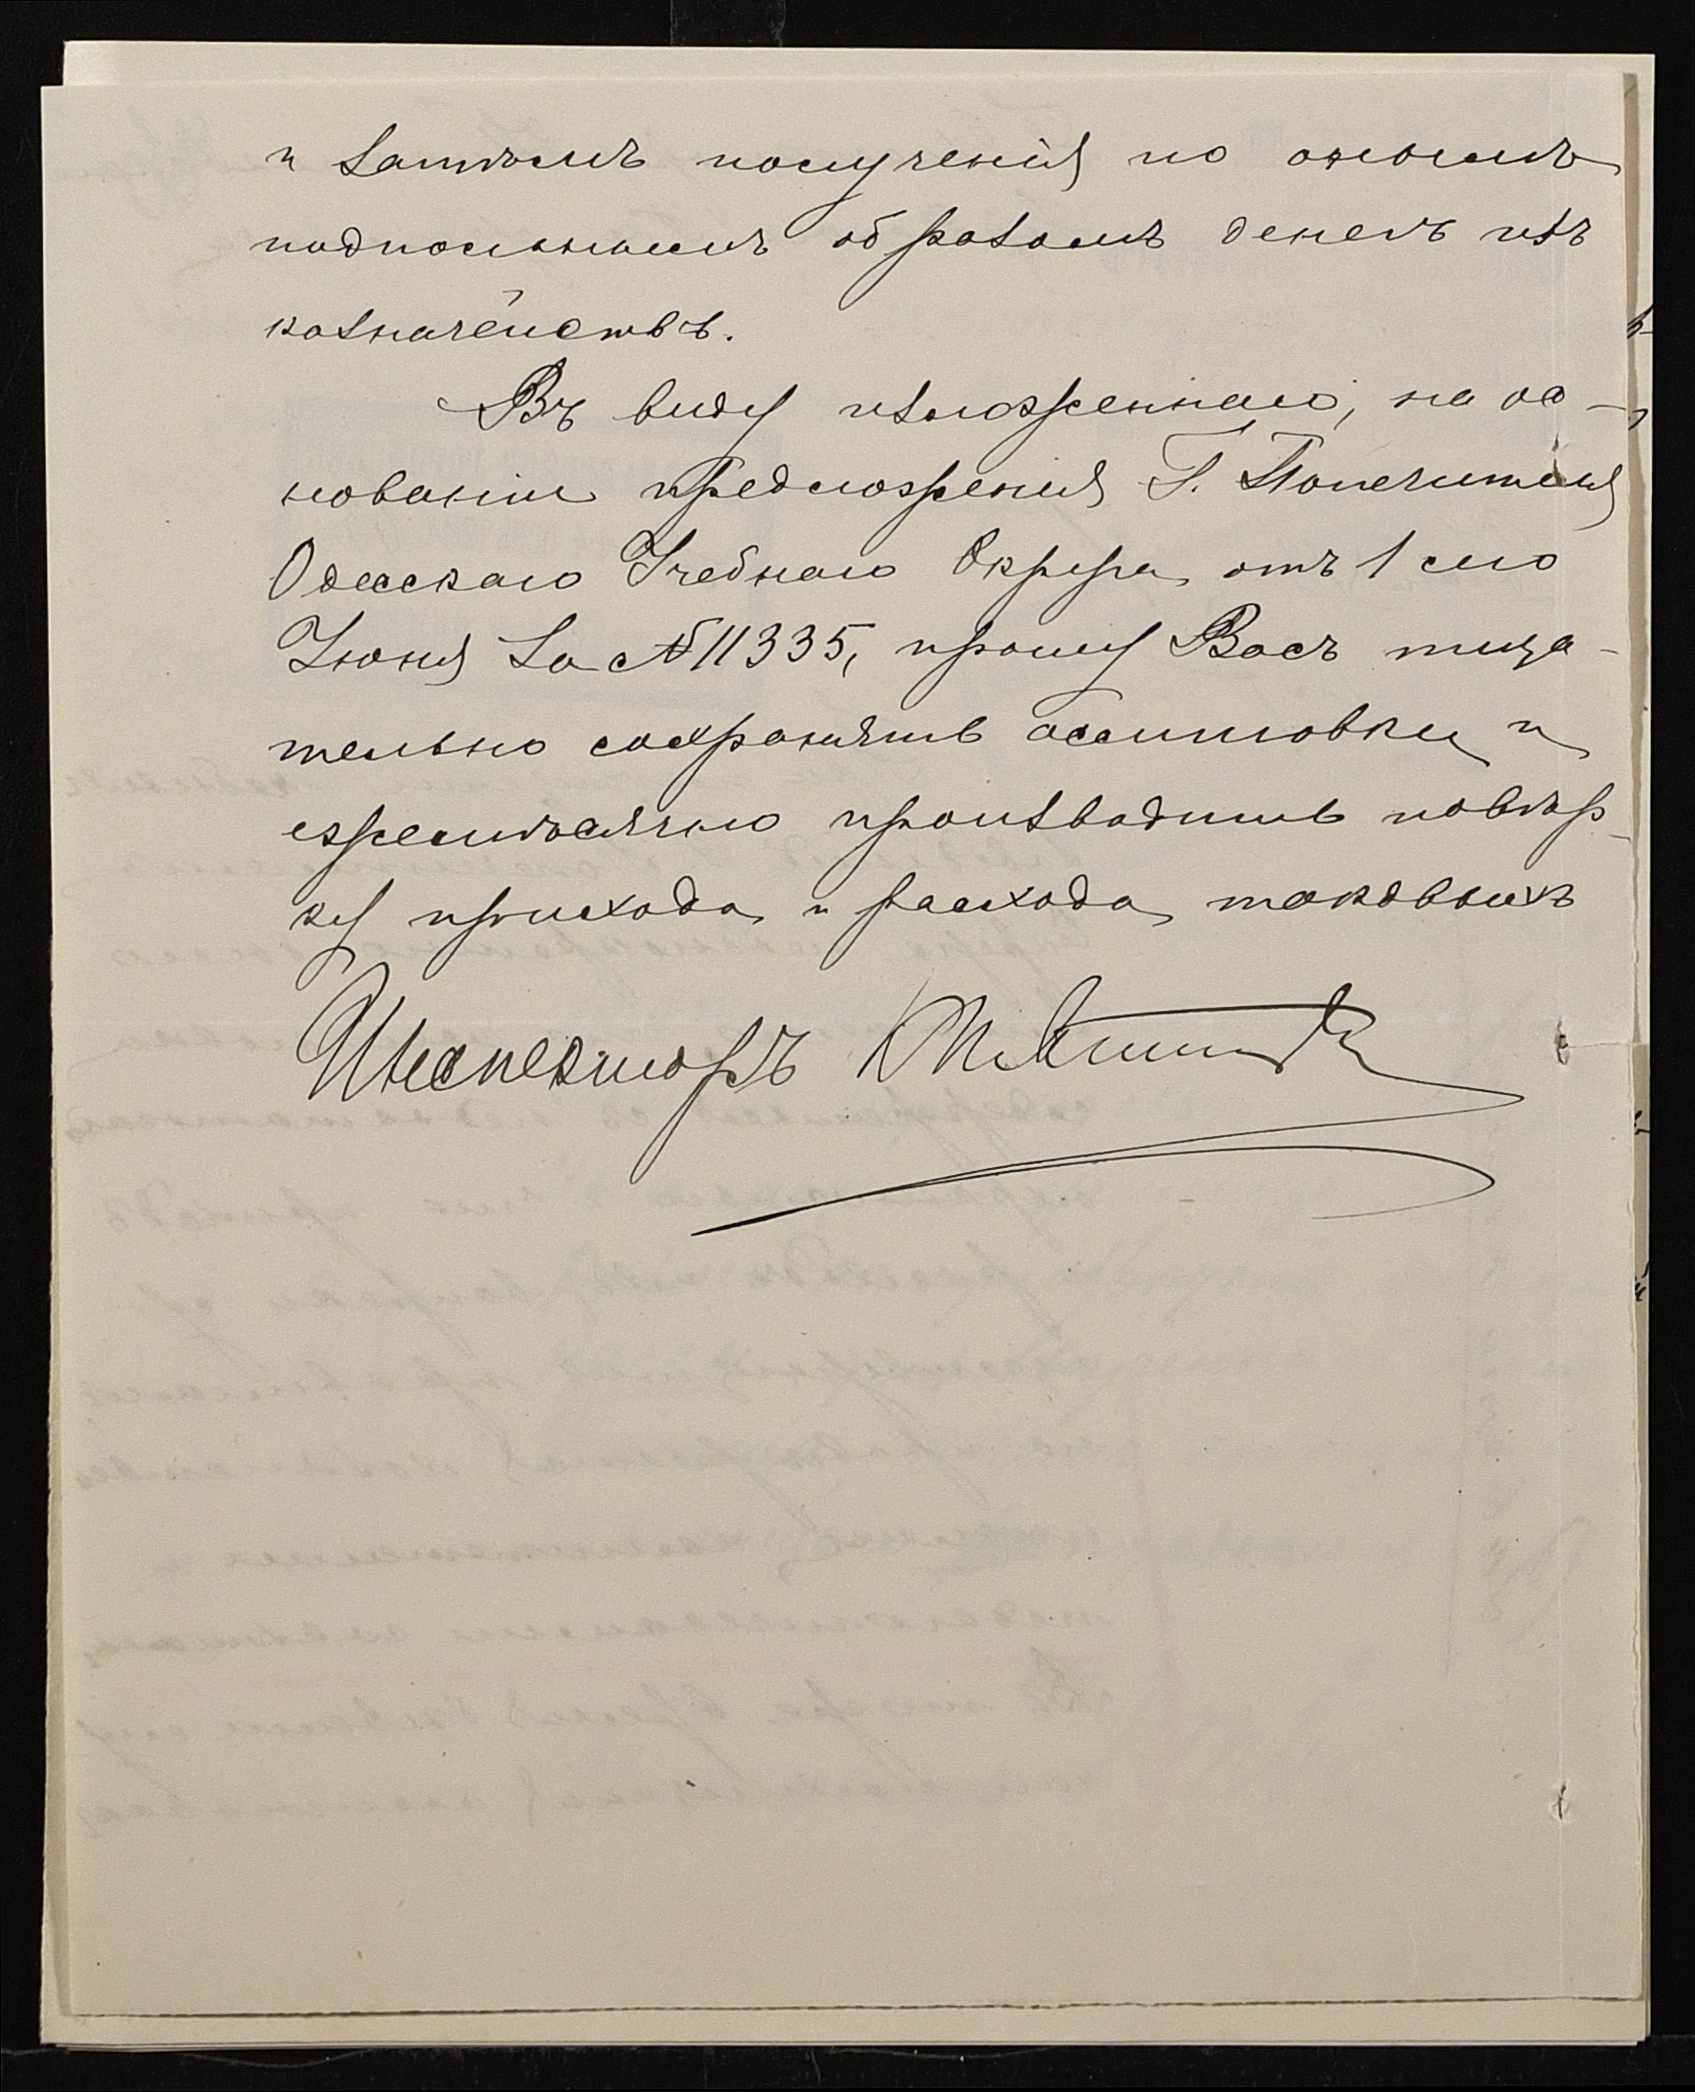 и затѣмъ полученія по онымъ
подпольнымъ образомъ денегъ изъ
казначействъ.
Въ виду изложеннаго, на ос-
нованіи предложенія Г. Попечителя
Одесскаго Учебнаго Округа отъ 1 сего
Іюня за №11335, прошу Васъ тща-
тельно сохранять ассигновки и
ежемѣсячно производить повѣр-
ку прихода и расхода таковыхъ
Инспекторъ